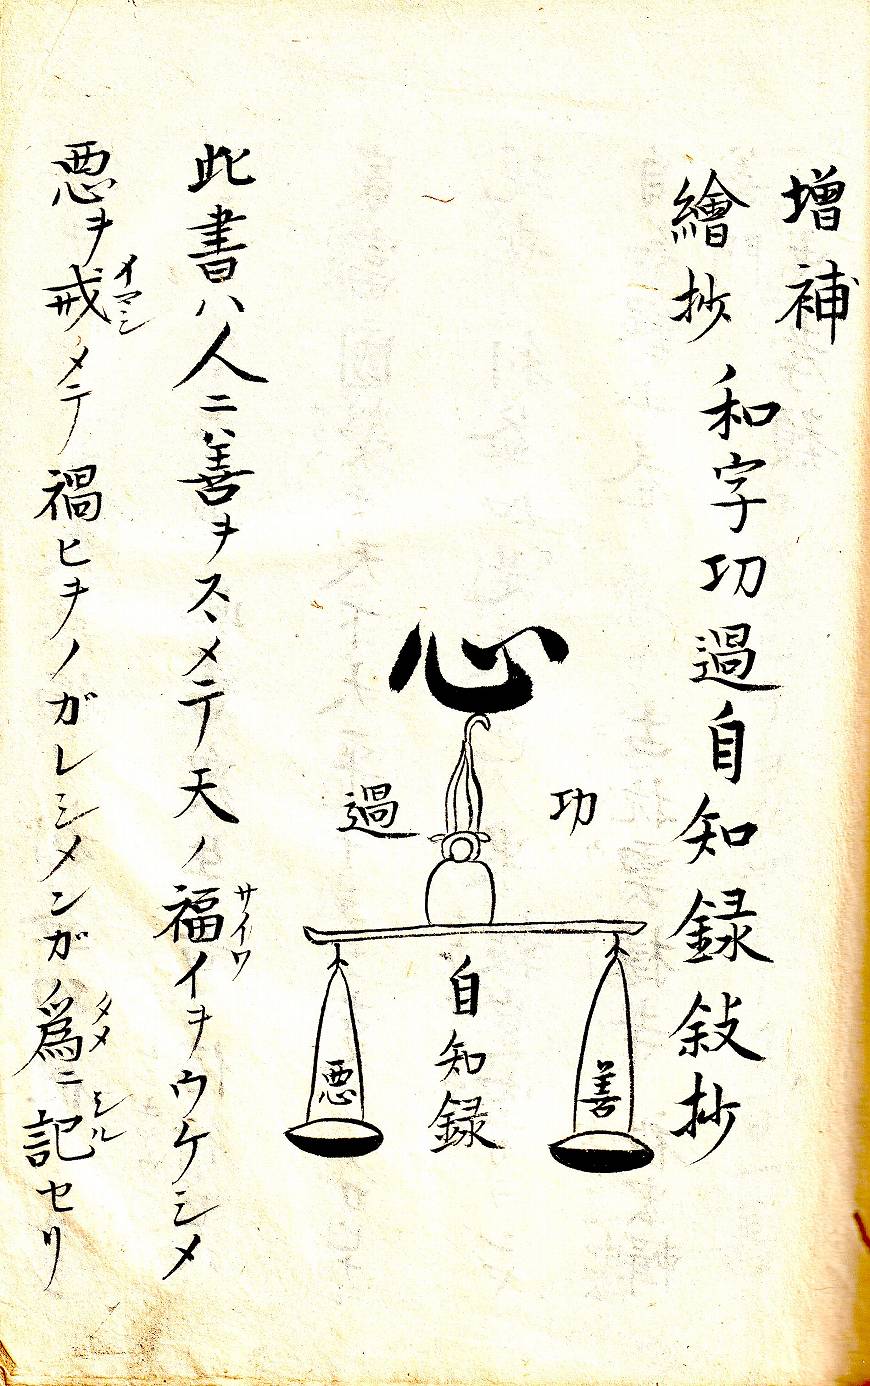 増補
繪抄
和字功過自知録敍抄
心
功
過
自知録
善
悪
此書ハ人ニハ善ヲスヽメテ天ノ福イヲウケシメ
サイワ
悪ヲ戒メテ禍ヒヲノガレシメンガ爲ニ記セリ
イマシ
タメ
シル